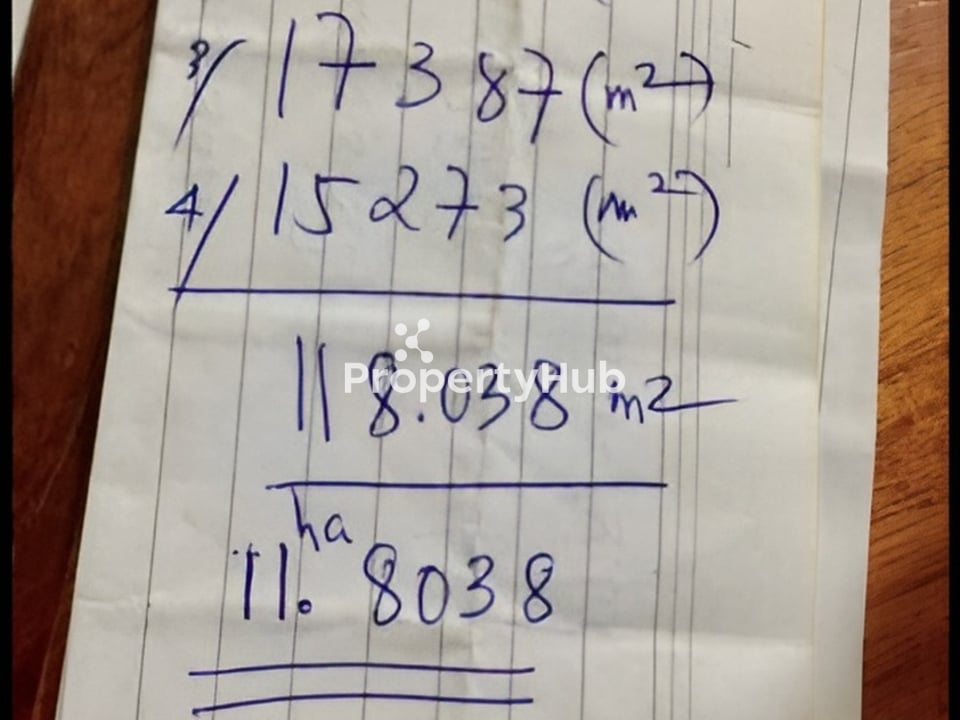 3/ 17387 (m²)
4/ 15273 (m²)
118.038 m2
PropertyHub
ha
11.8038